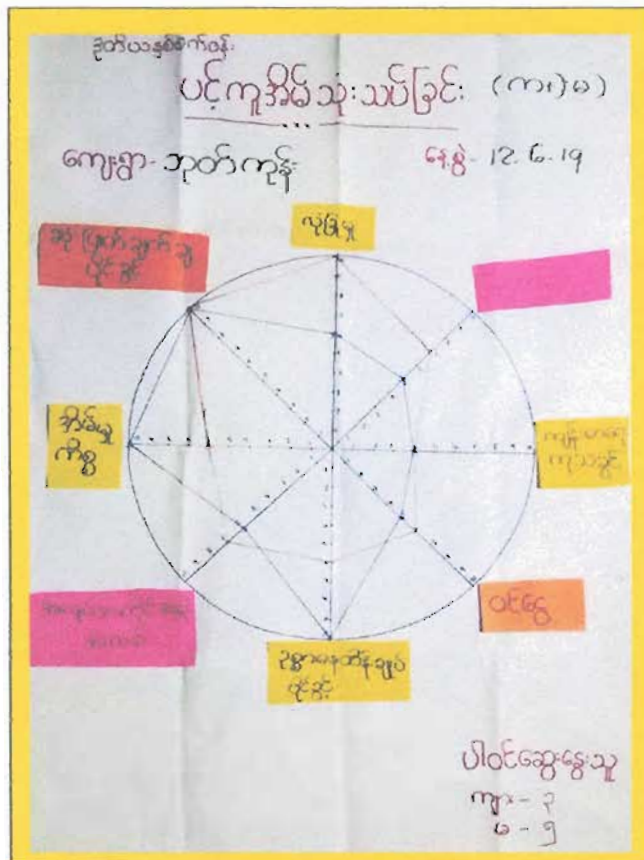 ဒုတိယနှစ်စက်ဝန်း
ပင့်ကူအိမ်သုံးသပ်ခြင်း (ကျား/မ)
ကျေးရွာ- ဘုတ်ကုန်း
နေ့စွဲ- 12.6.19
လုံခြုံမှု
ဆုံးဖြတ်ချက်ချ
ပိုင်ခွင့်
အိမ်မှု
ကိစ္စ
ကျန်းမာရေး
ကုသခွင့်
ဝင်ငွေ
ဥစ္စာဓနထိန်းချုပ်
ပိုင်ခွင့်
ပါဝင်ဆွေးနွေးသူ
ကျား - ၃
မ - ၅